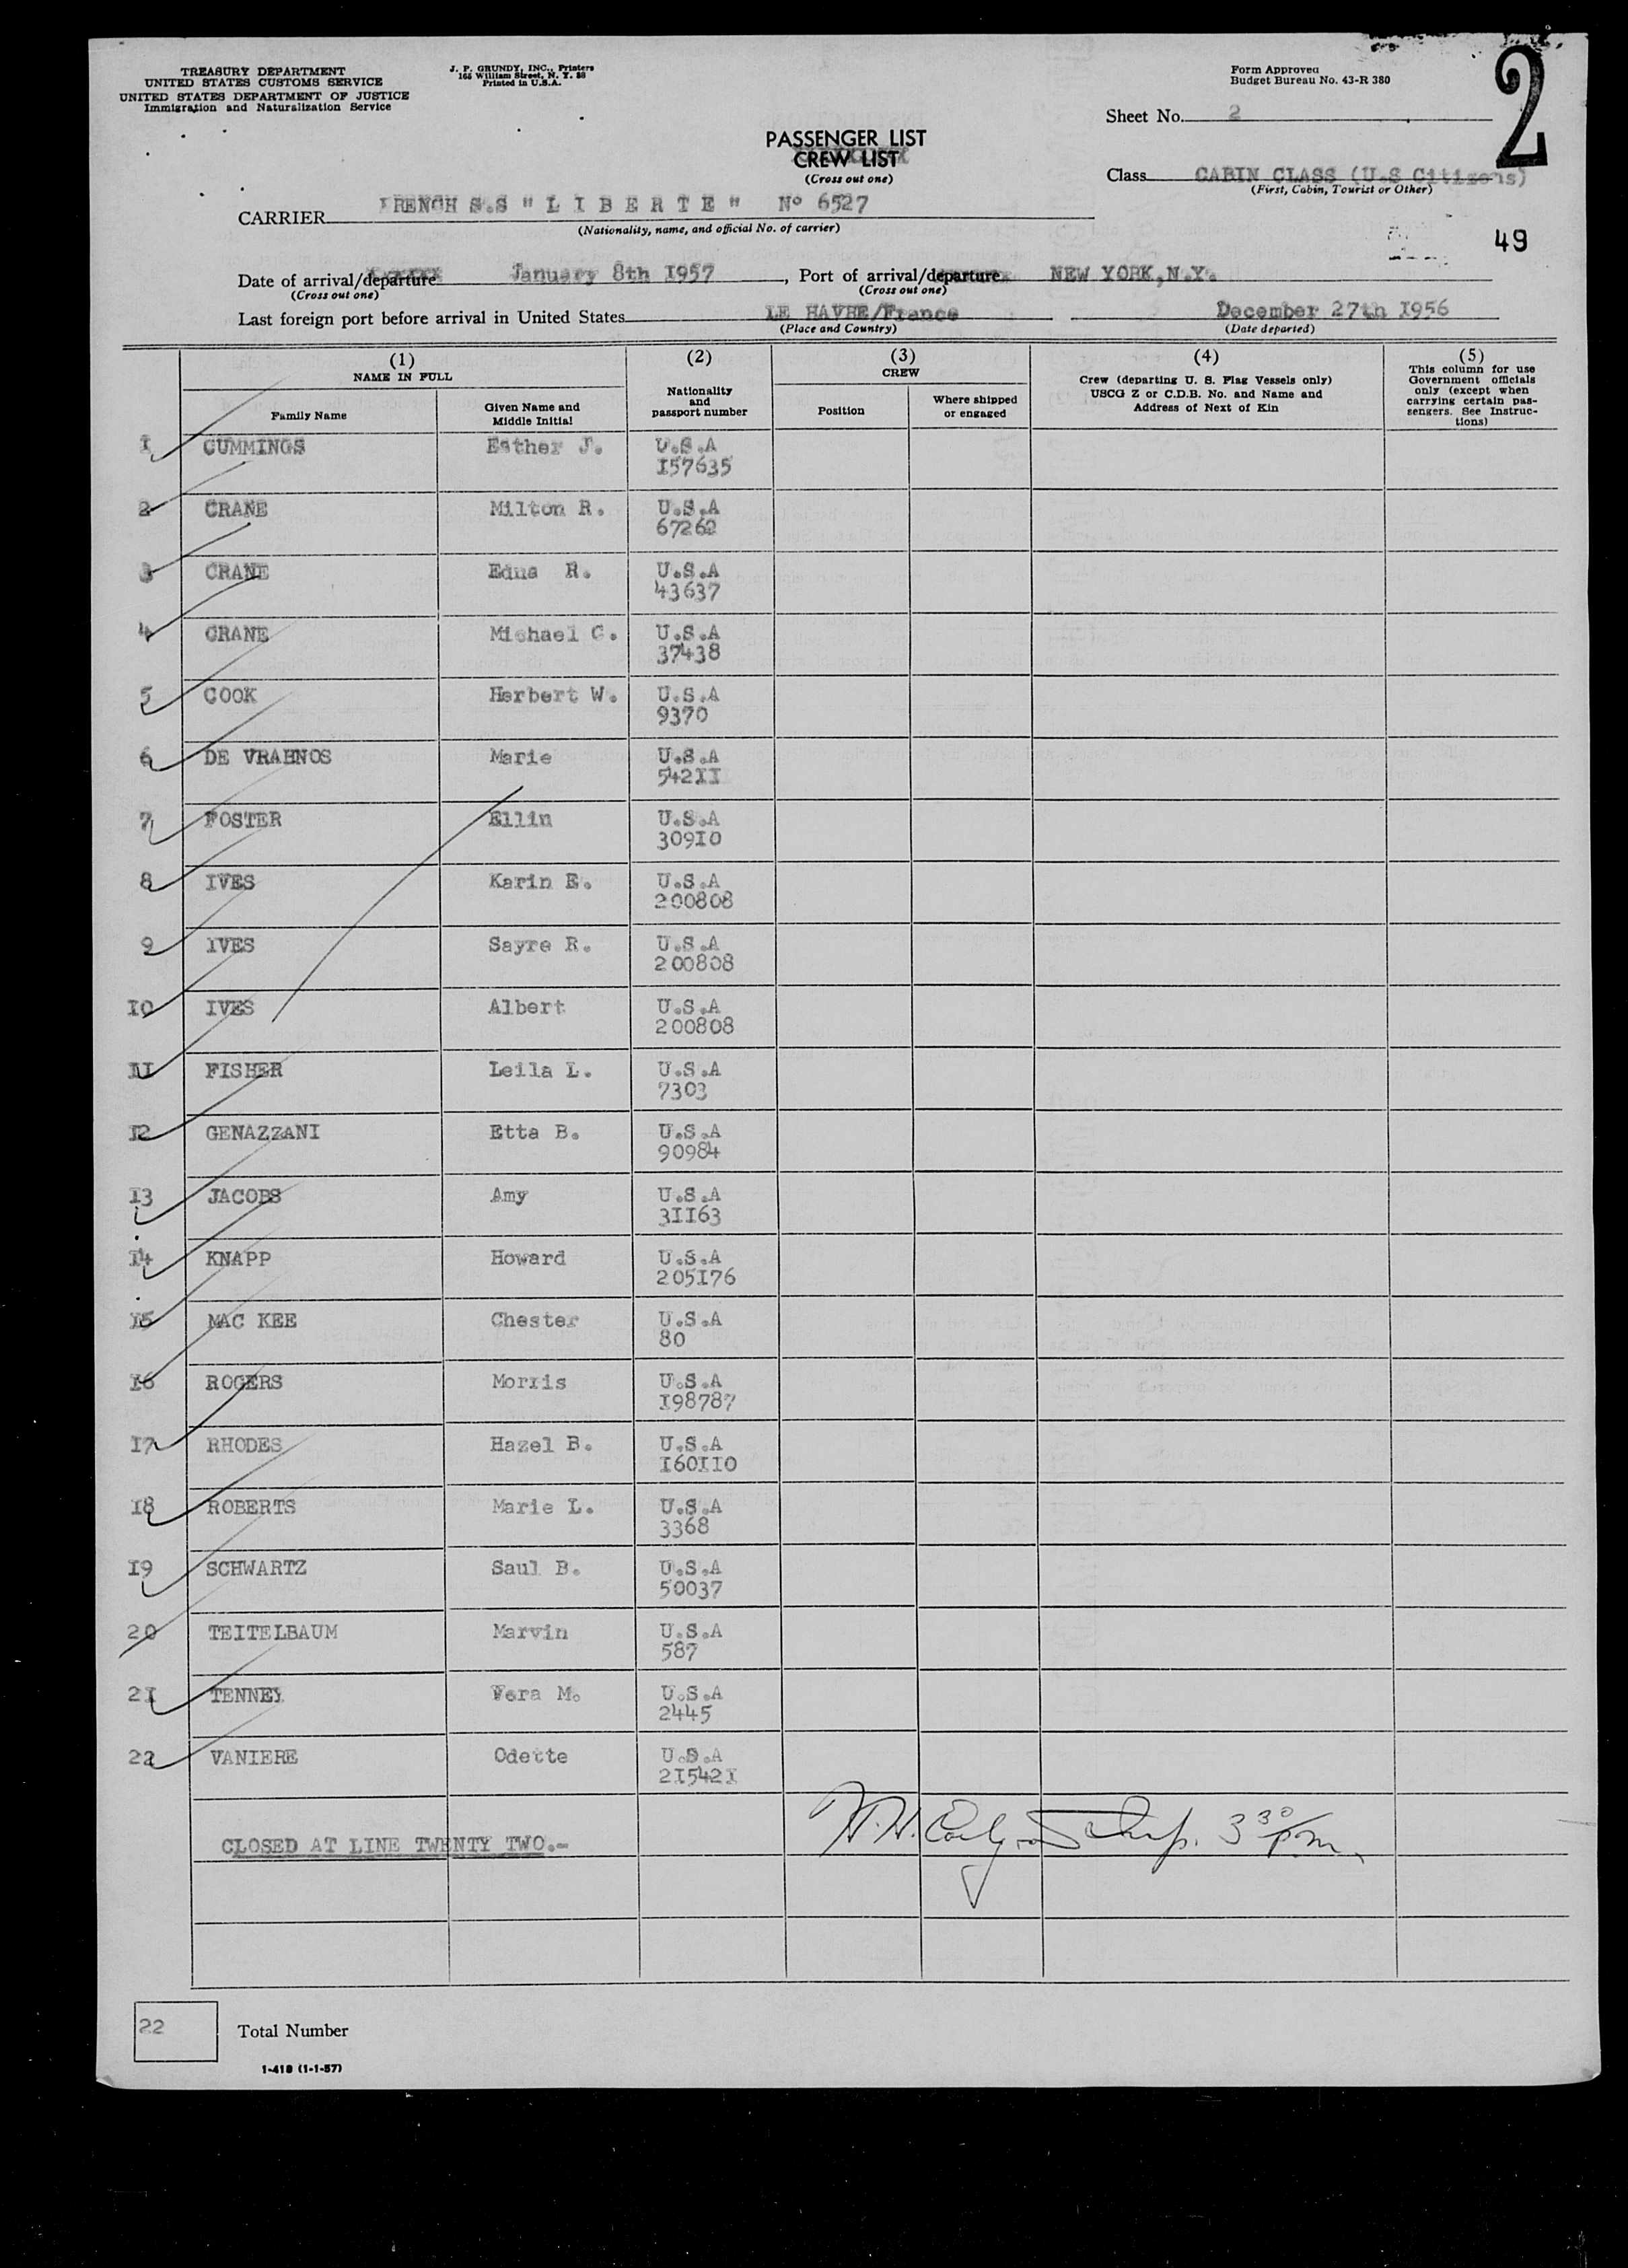 TREASURY DEPARTMENT
UNITED STATES CUSTOMS SERVICE
UNITED STATES DEPARTMENT OF JUSTICE
Immigration and Naturalization Service
J. P. GRUNDY, INC., Printers
165 William Street, N. Y. 38
Printed in U.S.A.
Form Approved
Budget Bureau No. 43-R 380
2
Sheet No. 2
PASSENGER LIST
CREW LIST
(Cross out one)
Class CABIN CLASS (U.S Citizens)
(First, Cabin, Tourist or Other)
CARRIER FRENCH S.S "LIBERTE" Nº 6527
(Nationality, name, and official No. of carrier)
49
Date of arrival/departure January 8th 1957, Port of arrival/departure NEW YORK, N.Y.
(Cross out one) (Cross out one)
Last foreign port before arrival in United States LE HAVRE/France December 27th 1956
(Place and Country) (Date departed)
(1) (2) (3) (4) (5)
NAME IN FULL
Family Name
Given Name and Middle Initial
Nationality and passport number
CREW
Position
Where shipped or engaged
Crew (departing U. S. Flag Vessels only)
USCG Z or C.D.B. No. and Name and
Address of Next of Kin
This column for use
Government officials
only (except when
carrying certain pas-
sengers. See Instruc-
tions)
I CUMMINGS Esther J. U.S.A
I57635
2 CRANE Milton R. U.S.A
67262
3 CRANE Edna R. U.S.A
43637
4 CRANE Michael C. U.S.A
37438
5 COOK Herbert W. U.S.A
9370
6 DE VRAHNOS Marie U.S.A
542II
7 FOSTER Ellin U.S.A
309I0
8 IVES Karin E. U.S.A
200808
9 IVES Sayre R. U.S.A
200808
I0 IVES Albert U.S.A
200808
II FISHER Leila L. U.S.A
7303
I2 GENAZZANI Etta B. U.S.A
90984
I3 JACOBS Amy U.S.A
3II63
I4 KNAPP Howard U.S.A
205I76
I5 MAC KEE Chester U.S.A
80
I6 ROGERS Morris U.S.A
I98787
I7 RHODES Hazel B. U.S.A
I60II0
I8 ROBERTS Marie L. U.S.A
3368
I9 SCHWARTZ Saul B. U.S.A
50037
20 TEITELBAUM Marvin U.S.A
587
2I TENNEY Vera M. U.S.A
2445
22 VANIERE Odette U.S.A
2I542I
CLOSED AT LINE TWENTY TWO.-
3 30 pm.
22 Total Number
I-418 (1-1-57)